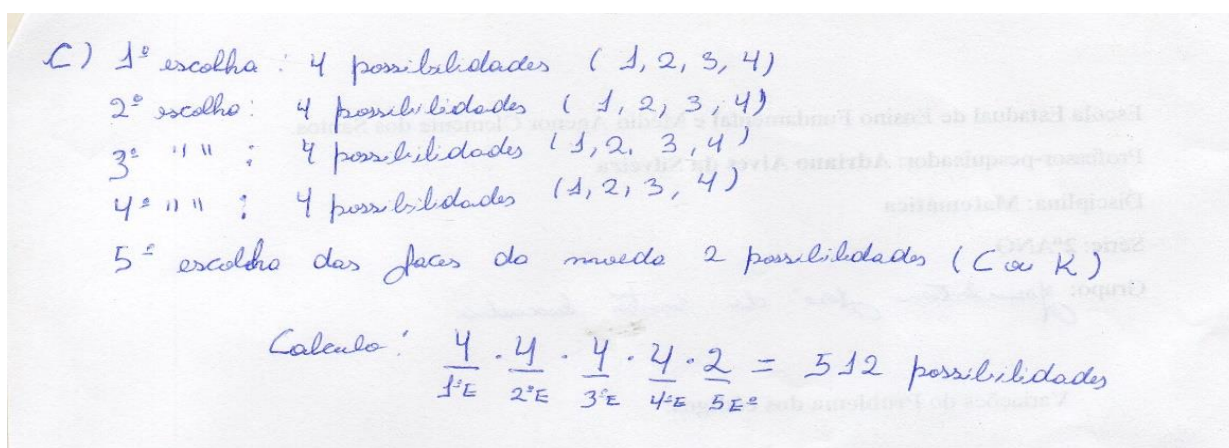 C) 1ª escolha : 4 possibilidades ( 1, 2, 3, 4)
2ª escolha : 4 possibilidades ( 1, 2, 3, 4)
3ª " " : 4 possibilidades ( 1, 2, 3, 4)
4ª " " : 4 possibilidades (1, 2, 3, 4)
5ª escolha das faces da moeda 2 possibilidades ( C ou K )
Calculo : 4 . 4 . 4 . 4 . 2 = 512 possibilidades
1ªE 2ªE 3ªE 4ªE 5Eª
Escola Estadual de Ensino Fundamental e Médio Agenor Clemente dos Santos
Professor-pesquisador: Adriano Alves da Silveira
Disciplina: Matemática
Série: 2ºANO
Grupo:
Variações do Problema dos